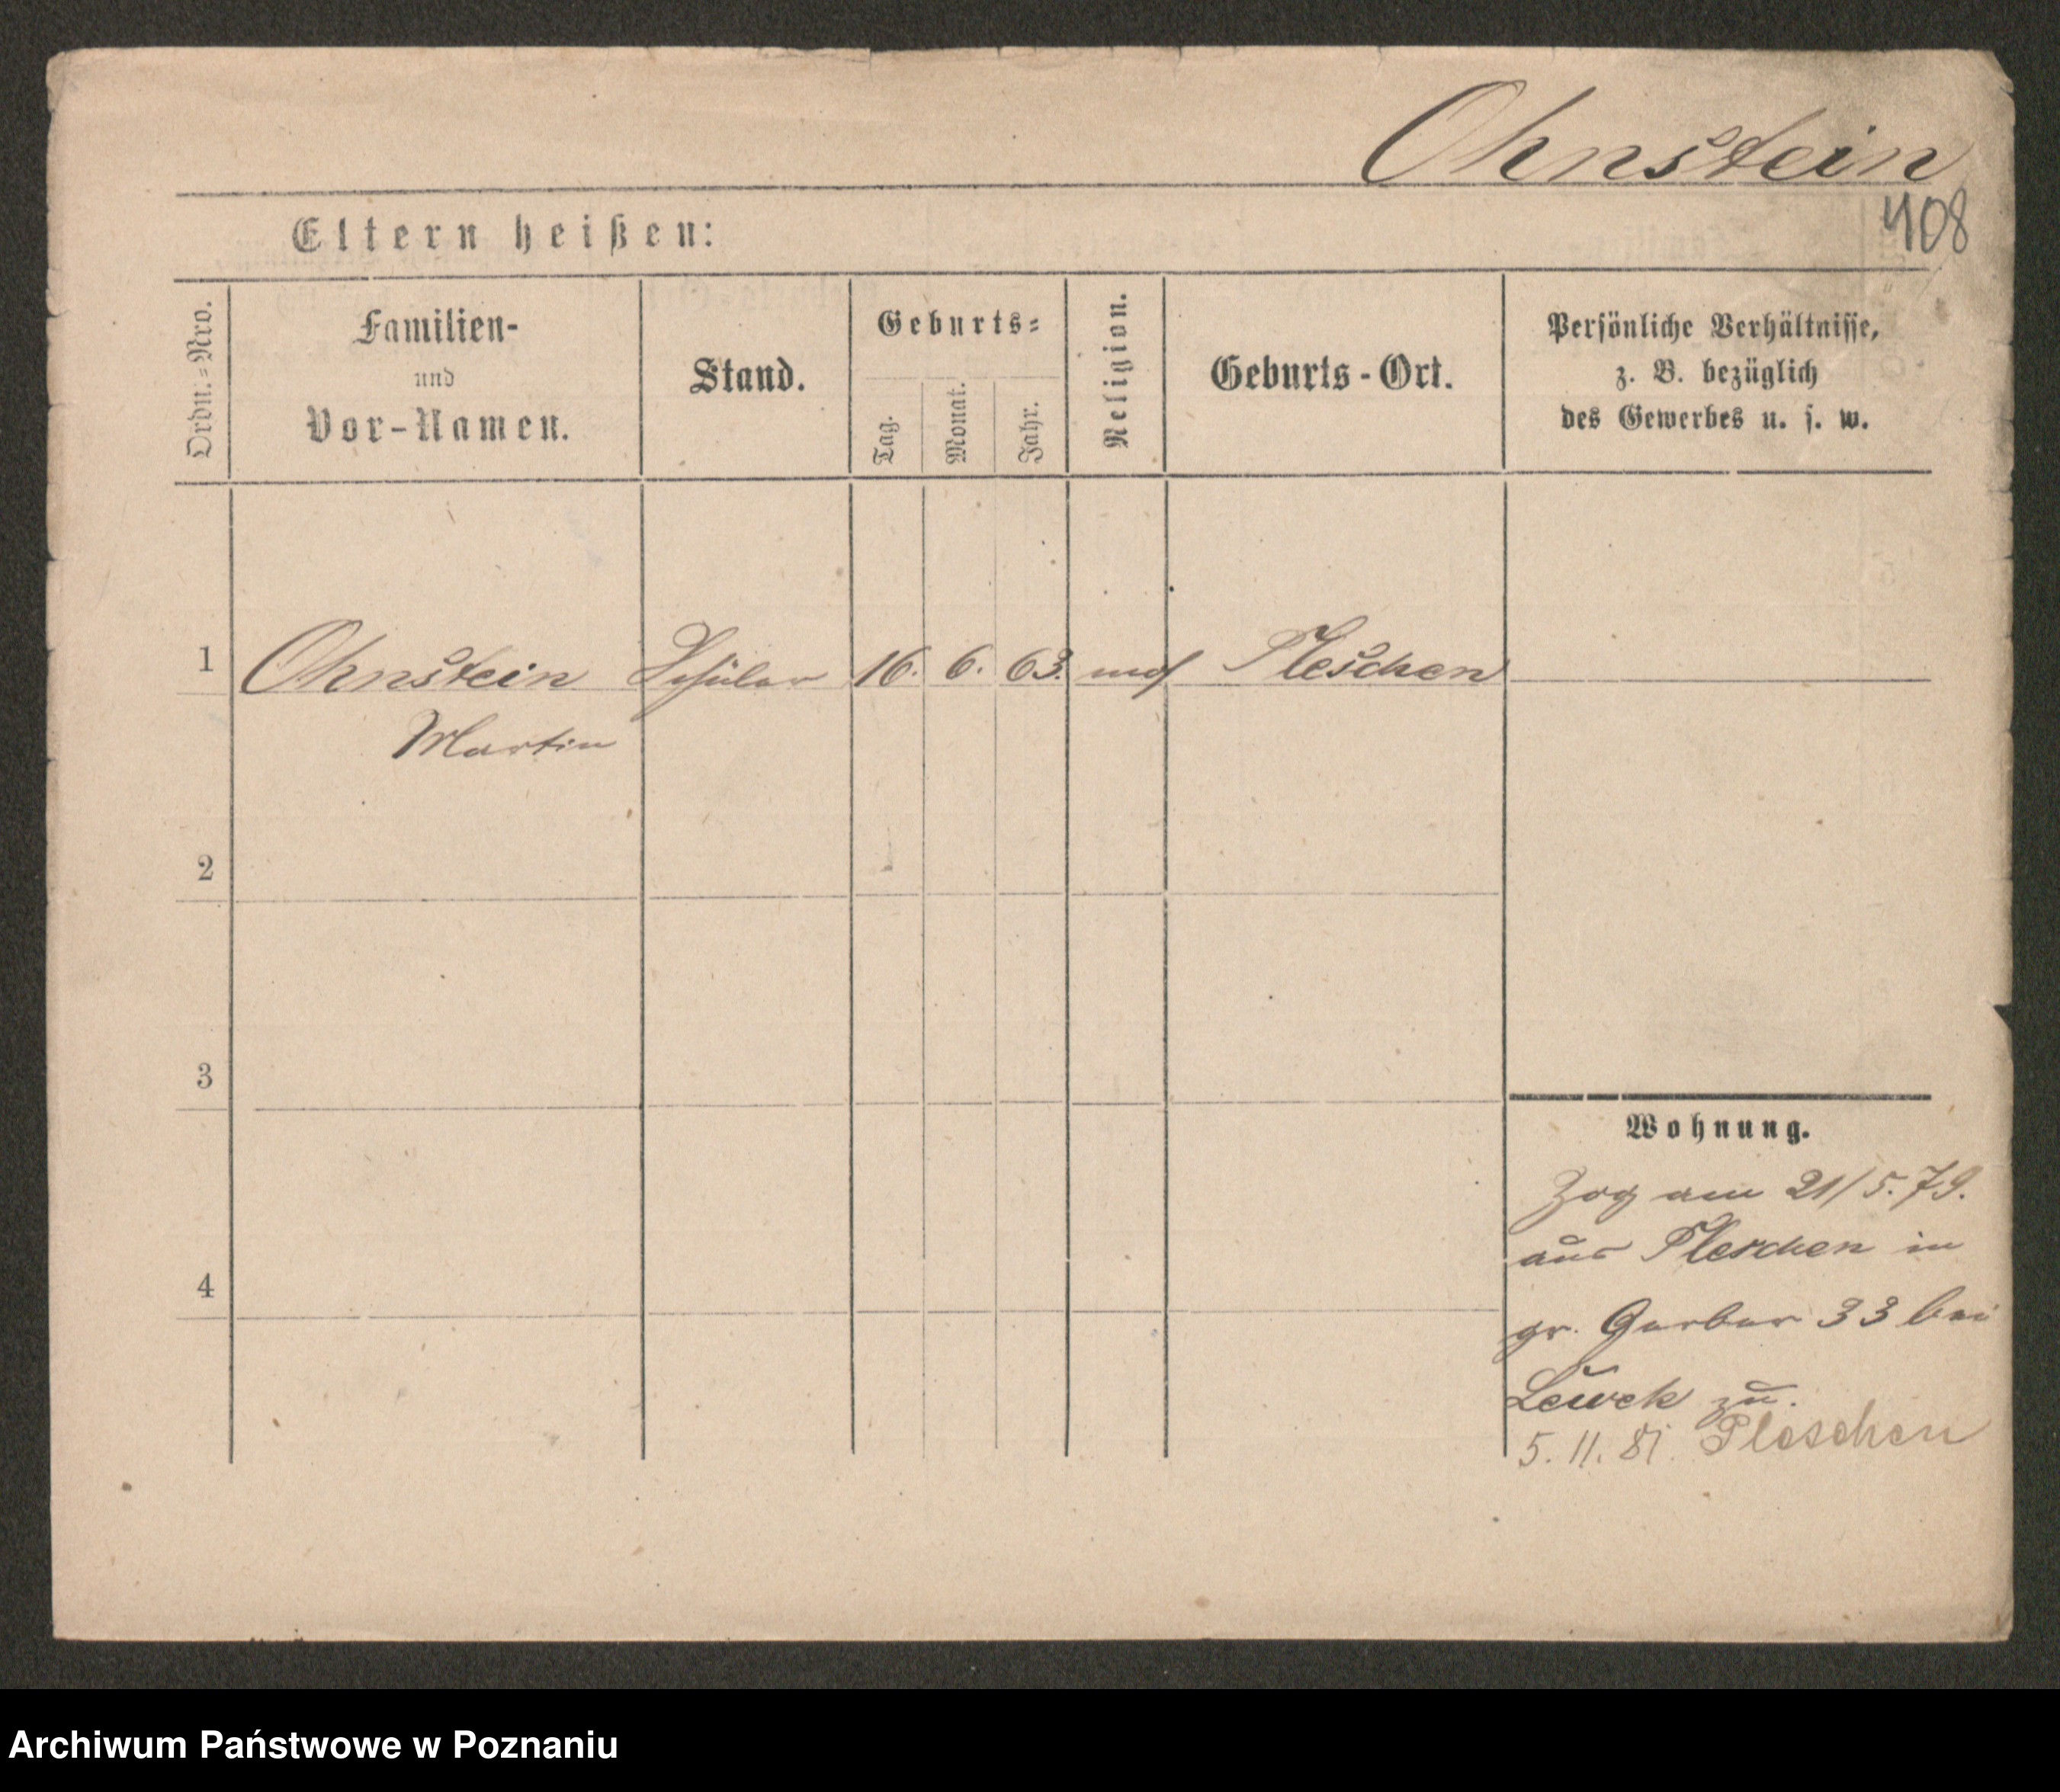 Ohnstein
408
Eltern heißen:
Ordn.=Nro.
Familien-
und
Vor-Namen.
Stand.
Geburts=
Tag.
Monat.
Jahr.
Religion.
Geburts-Ort.
Persönliche Verhältnisse,
z. B. bezüglich
des Gewerbes u. s. w.
1 Ohnstein Schüler 16. 6. 63. mos Pleschen
Martin
2
3
4
Wohnung.
Zog am 21/5.79.
aus Pleschen in
gr. Gerber 33 bei
Lewek zu.
5. 11. 81. Pleschen
Archiwum Państwowe w Poznaniu